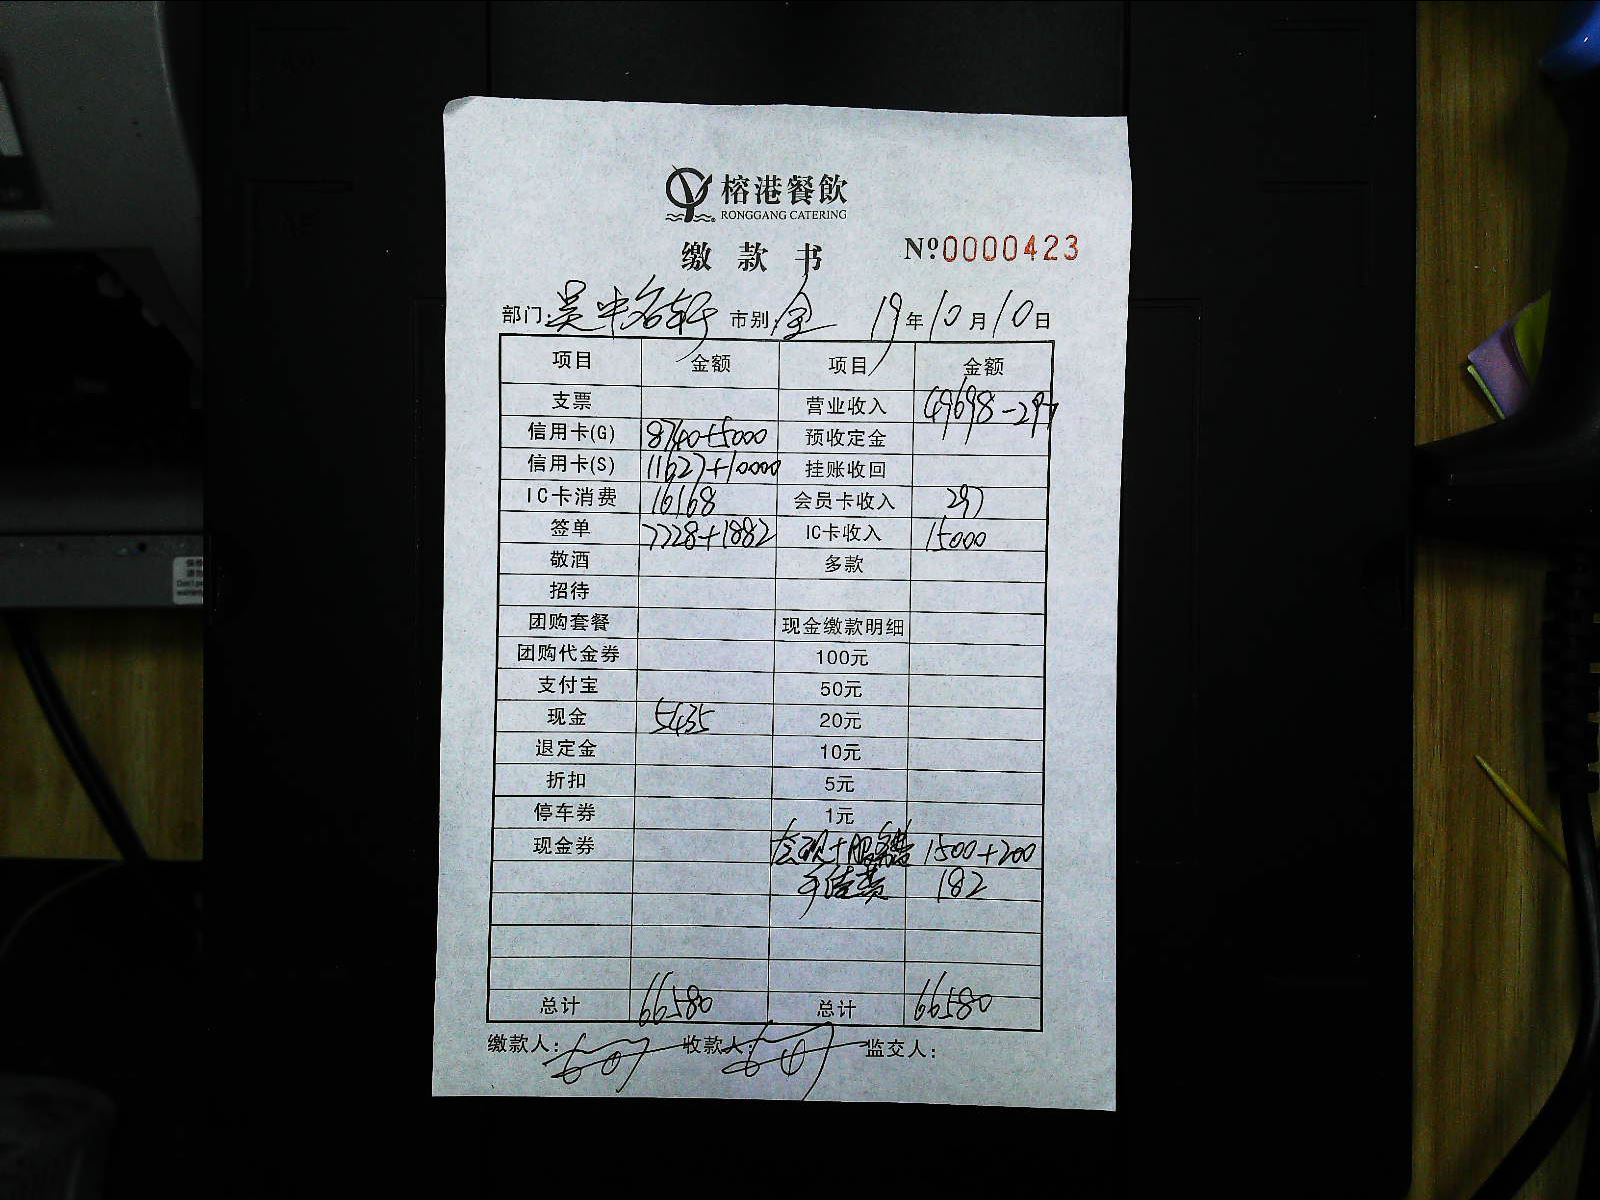 榕港餐飲
RONGGANG CATERING
缴款书 №0000423
部门:吴中名轩 市别 全 19年10月10日
项目 金额 项目 金额
支票 营业收入 49698-297
信用卡(G) 8740+5000 预收定金
信用卡(S) 11627+10000 挂账收回
IC卡消费 16168 会员卡收入 297
签单 7728+1882 IC卡收入 15000
敬酒 多款
招待
团购套餐 现金缴款明细
团购代金券 100元
支付宝 50元
现金 5435 20元
退定金 10元
折扣 5元
停车券 1元
现金券 1500+200
手续费 182
总计 66580 总计 66580
缴款人: 收款人: 监交人: